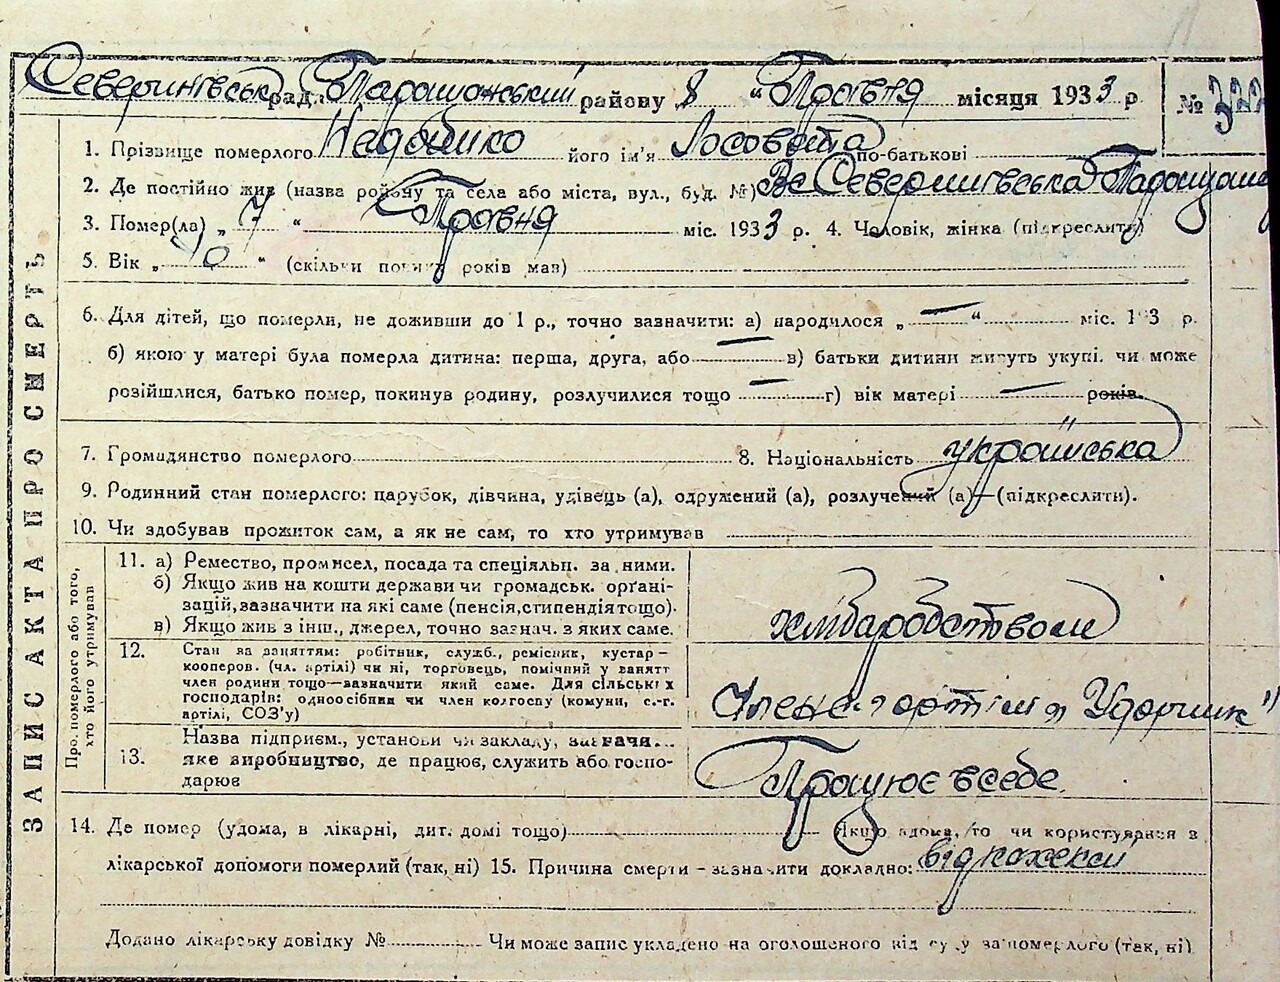 Северинівська рада Таращанський району 8 „ Травня місяця 1933 р № 322
1. Прізвище померлого його ім'я по-батькові
2. Де постійно жив (назва району та села або міста, вул., буд. №) Вс Северинівська Таращанс
3. Помер(ла) „ 7 “ Травня міс. 1933 р. 4. Чоловік, жінка (підкреслити)
5. Вік „ “ (скільки повних років мав)
6. Для дітей, що померли, не доживши до 1 р., точно зазначити: а) народилося „ — “ міс. 193 р.
б) якою у матері була померла дитина: перша, друга, або — в) батьки дитини живуть укупі. чи може
розійшлися, батько помер, покинув родину, розлучилися тощо — г) вік матері — років.
7. Громадянство померлого 8. Національність українська
9. Родинний стан померлого: парубок, дівчина, удівець (а), одружений (а), розлучений (а)—(підкреслити).
10. Чи здобував прожиток сам, а як не сам, то хто утримував
ЗАПИС АКТА ПРО СМЕРТЬ
Про померлого або того, хто його утримував
11. а) Ремество, промисел, посада та спеціяльн. за ними.
б) Якщо жив на кошти держави чи громадськ. орґані-
зацій, зазначити на які саме (пенсія, стипендія тощо).
в) Якщо жив з інш., джерел, точно зазнач. з яких саме.
хліборобством
12. Стан за заняттям: робітник, служб., ремісник, кустар –
кооперов. (чл. артілі) чи ні, торговець, помічний у занятт
член родини тощо—зазначити який саме. Для сільських
господарів: одноосібник чи член колгоспу (комуни, с.-г.
артілі, СОЗ'у)
Член артілі „Ударник“
13. Назва підприєм., установи чи закладу, зазнача...
яке виробництво, де працює, служить або госпо-
дарює
Працює в себе
14. Де помер (удома, в лікарні, дит. домі тощо) Якщо вдома, то чи користувався з
лікарської допомоги померлий (так, ні) 15. Причина смерти – зазначити докладно: від кахексиї
Додано лікарську довідку № Чи може запис укладено на оголошеного від суду за померлого (так, ні)